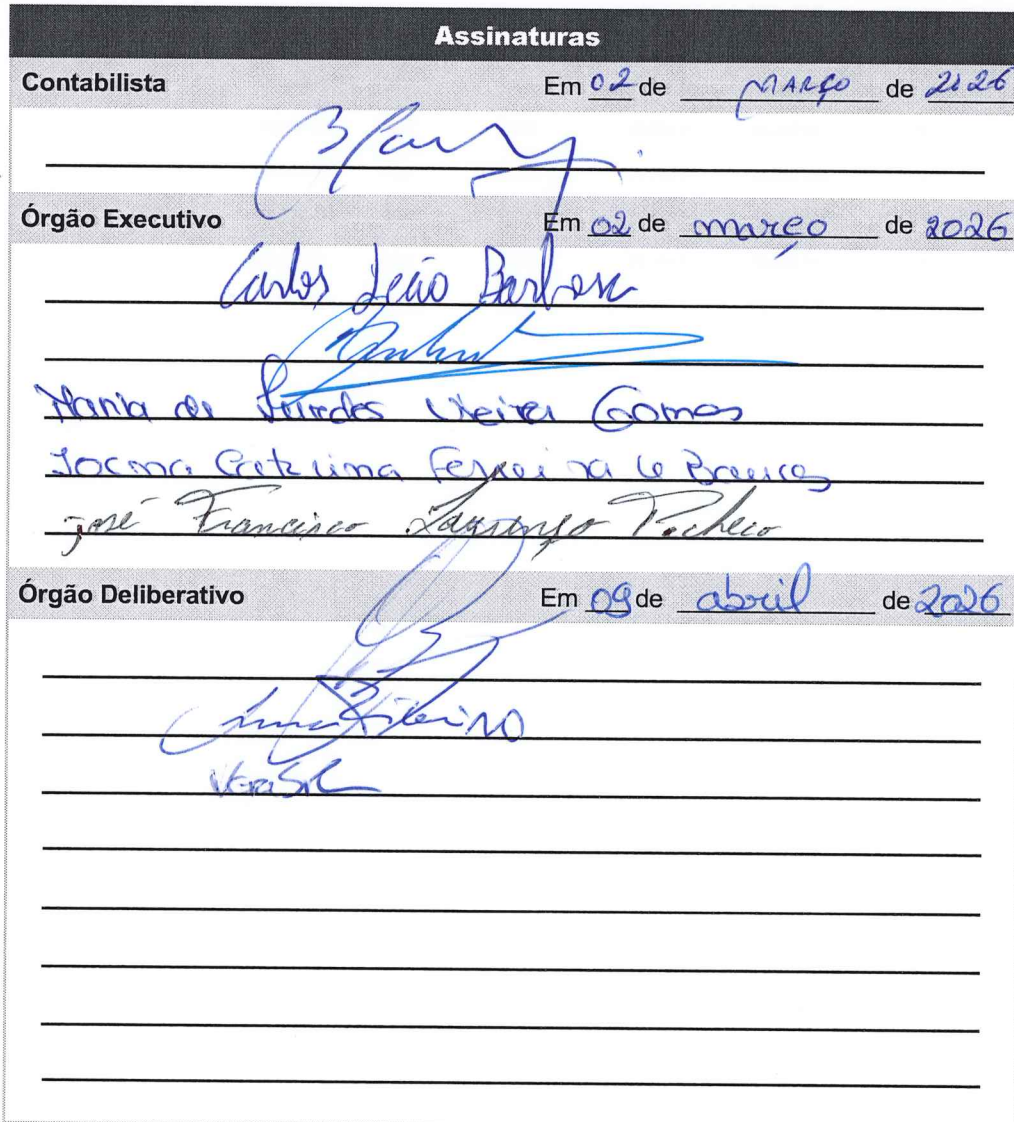 Assinaturas
Contabilista Em 02 de MARÇO de 2026
Órgão Executivo Em 02 de março de 2026
Carlos João Barbosa
Maria de Lurdes Vieira Gomes
Joana Catarina Ferreira
José Francisco Lourenço Pacheco
Órgão Deliberativo Em 09 de abril de 2026
Ribeiro
Vera